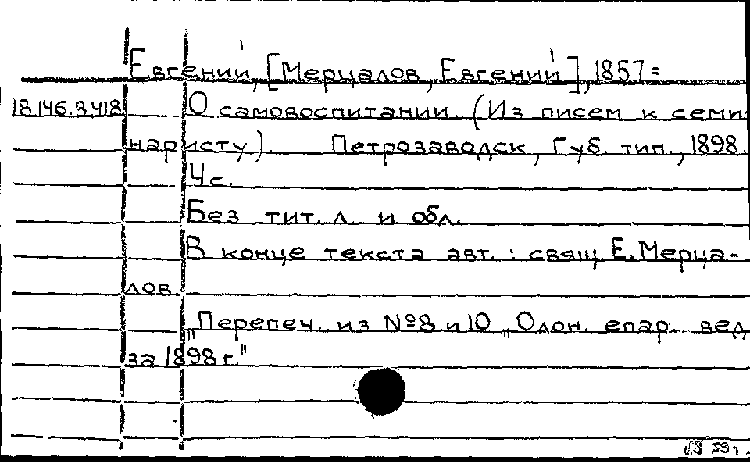 Евгений, [Мерцалов, Евгений], 1857=
18.146.3.418 О самовоспитании. (Из писем к семи
наристу). Петрозаводск, Губ. тип., 1898.
4 с.
Без тит. л. и обл.
В конце текста авт.: свящ. Е. Мерца-
лов.
„Перепеч. из №8 и 10 „Олон. епар. вед
за 1898 г."